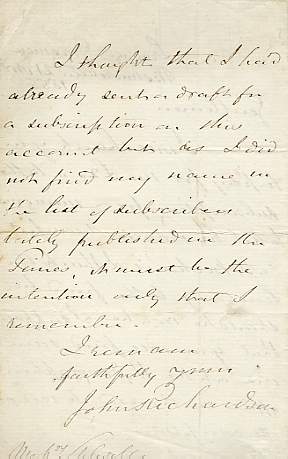 I thought that I had
already sent a draft for
a subscription on this
account but as I did
not find my name in
the list of subscribers
lately published in the
Times, it must be the
intention only that I
remember.
I remain
faithfully yours
John Richardson